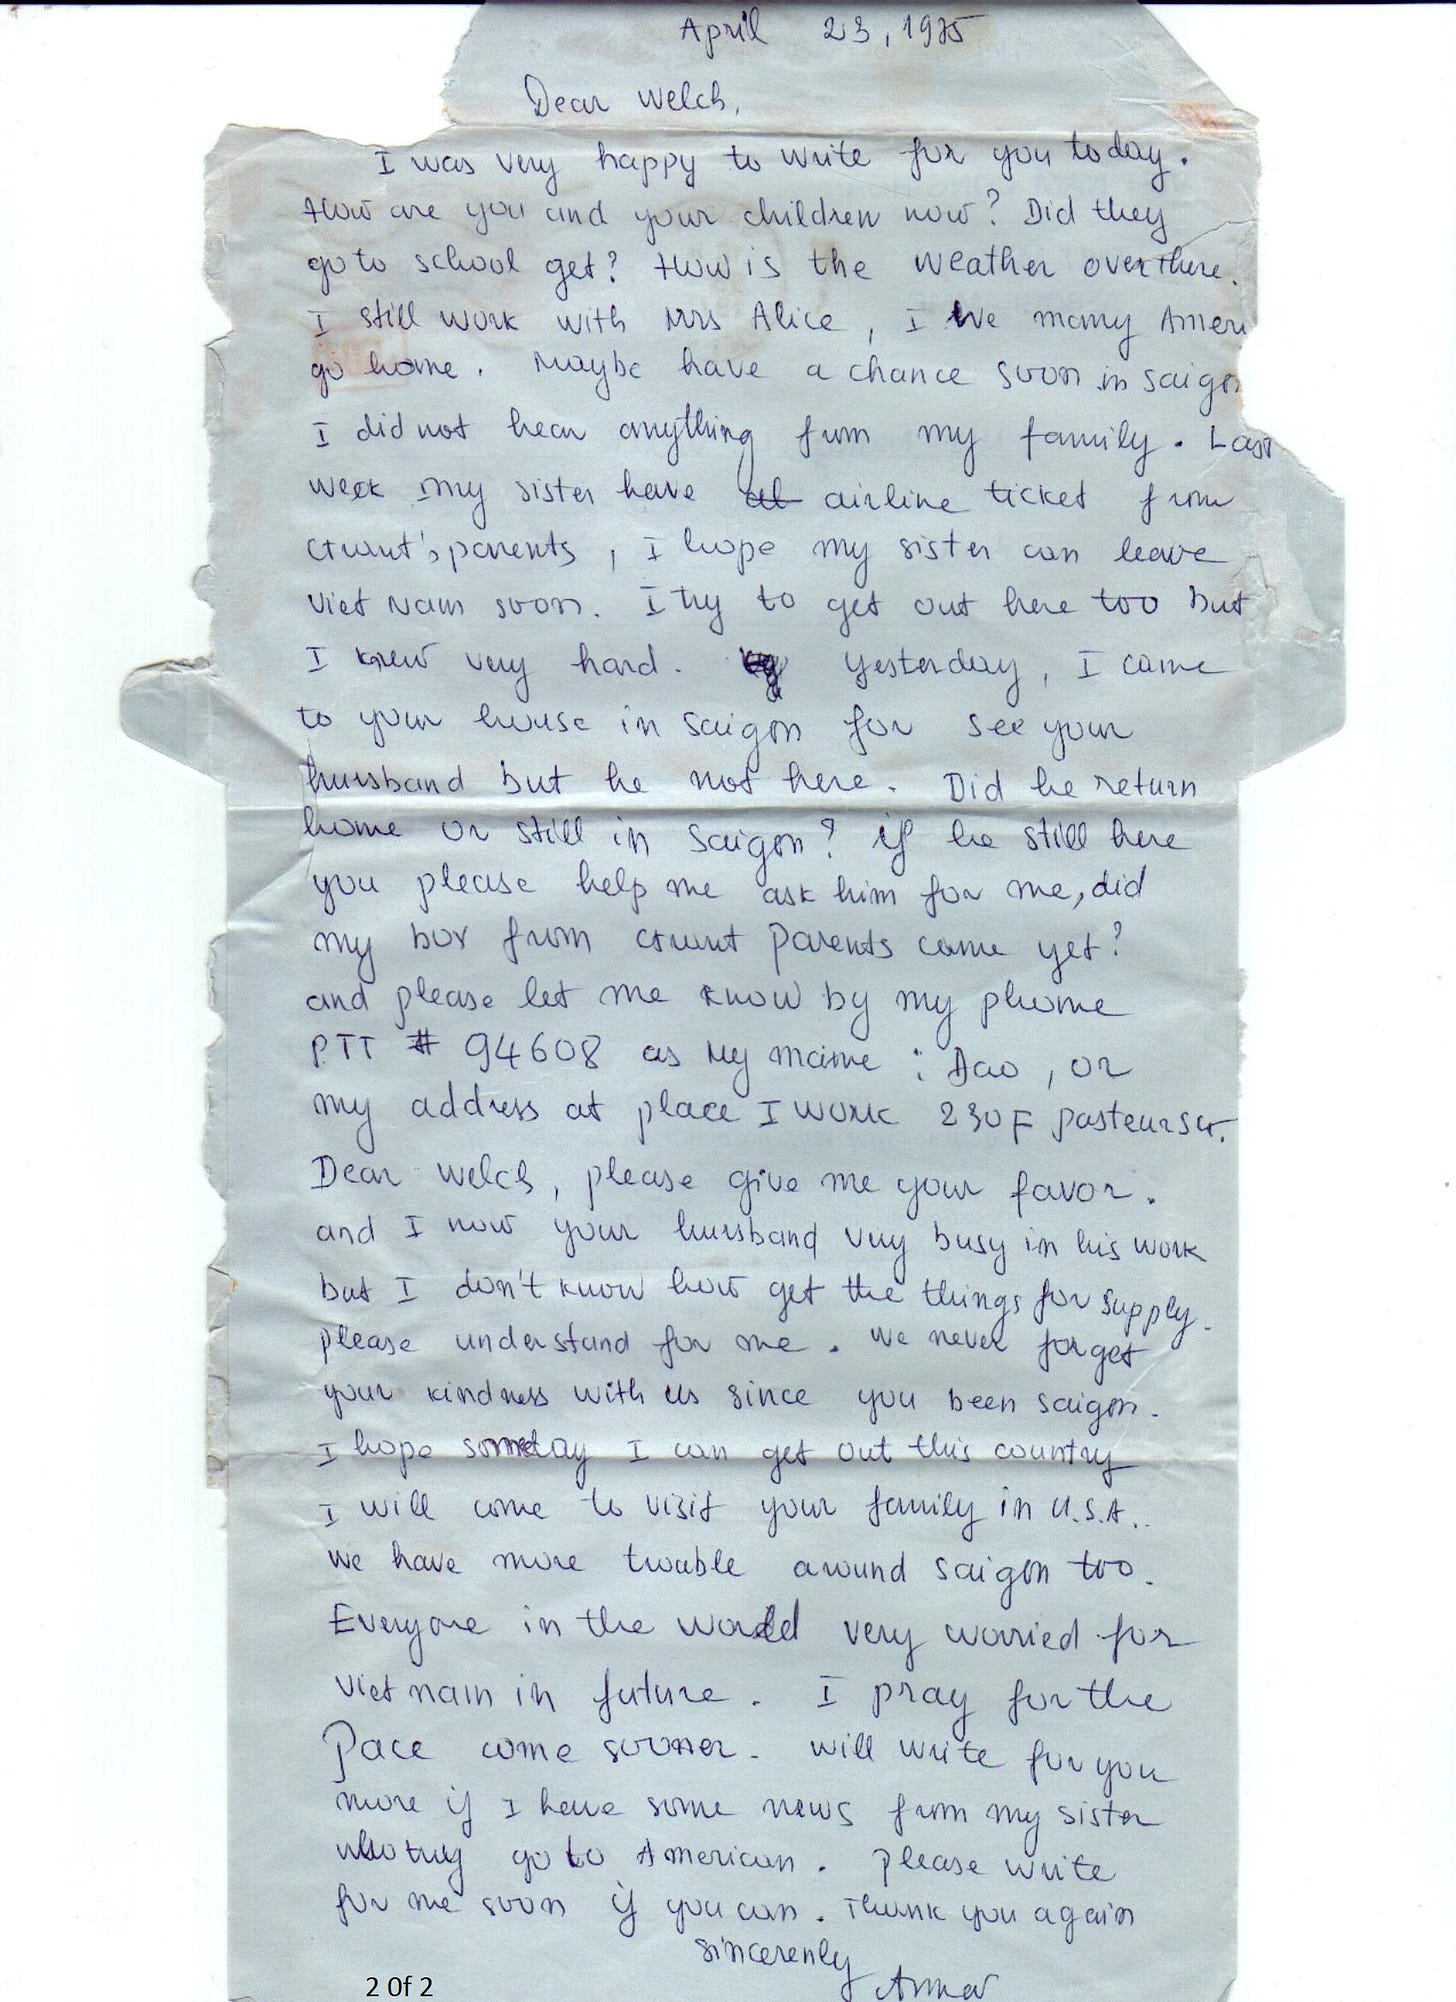 April 23, 1975
Dear Welch,
I was very happy to write for you today.
How are you and your children now? Did they
go to school get? How is the weather over there.
I still work with Mrs Alice, I many Ameri
go home. Maybe have a chance soon in saigon
I did not hear anything from my family. Last
week my sister have airline ticket from
parents, I hope my sister can leave
Viet Nam soon. I try to get out here too but
I knew very hard. yesterday, I came
to your house in saigon for see your
hursband but he not here. Did he return
home or still in saigon? if he still here
you please help me ask him for me, did
my box from parents come yet?
and please let me know by my phome
PTT # 94608 as My name : Dao, or
my address at place I work 230F pasteur str.
Dear Welch, please give me your favor.
and I now your hursband very busy in his work
but I don't know how get the things for supply.
please understand for me. We never forget
your kindness with us since you been saigon.
I hope someday I can get out this country
I will come to visit your family in U.S.A..
We have more trouble around saigon too.
Everyone in the world very worried for
Viet nam in future. I pray for the
Pace come sooner. will write for you
more if I have some news from my sister
go to American. please write
for me soon if you can. Thank you again
sincerenly
2 0f 2